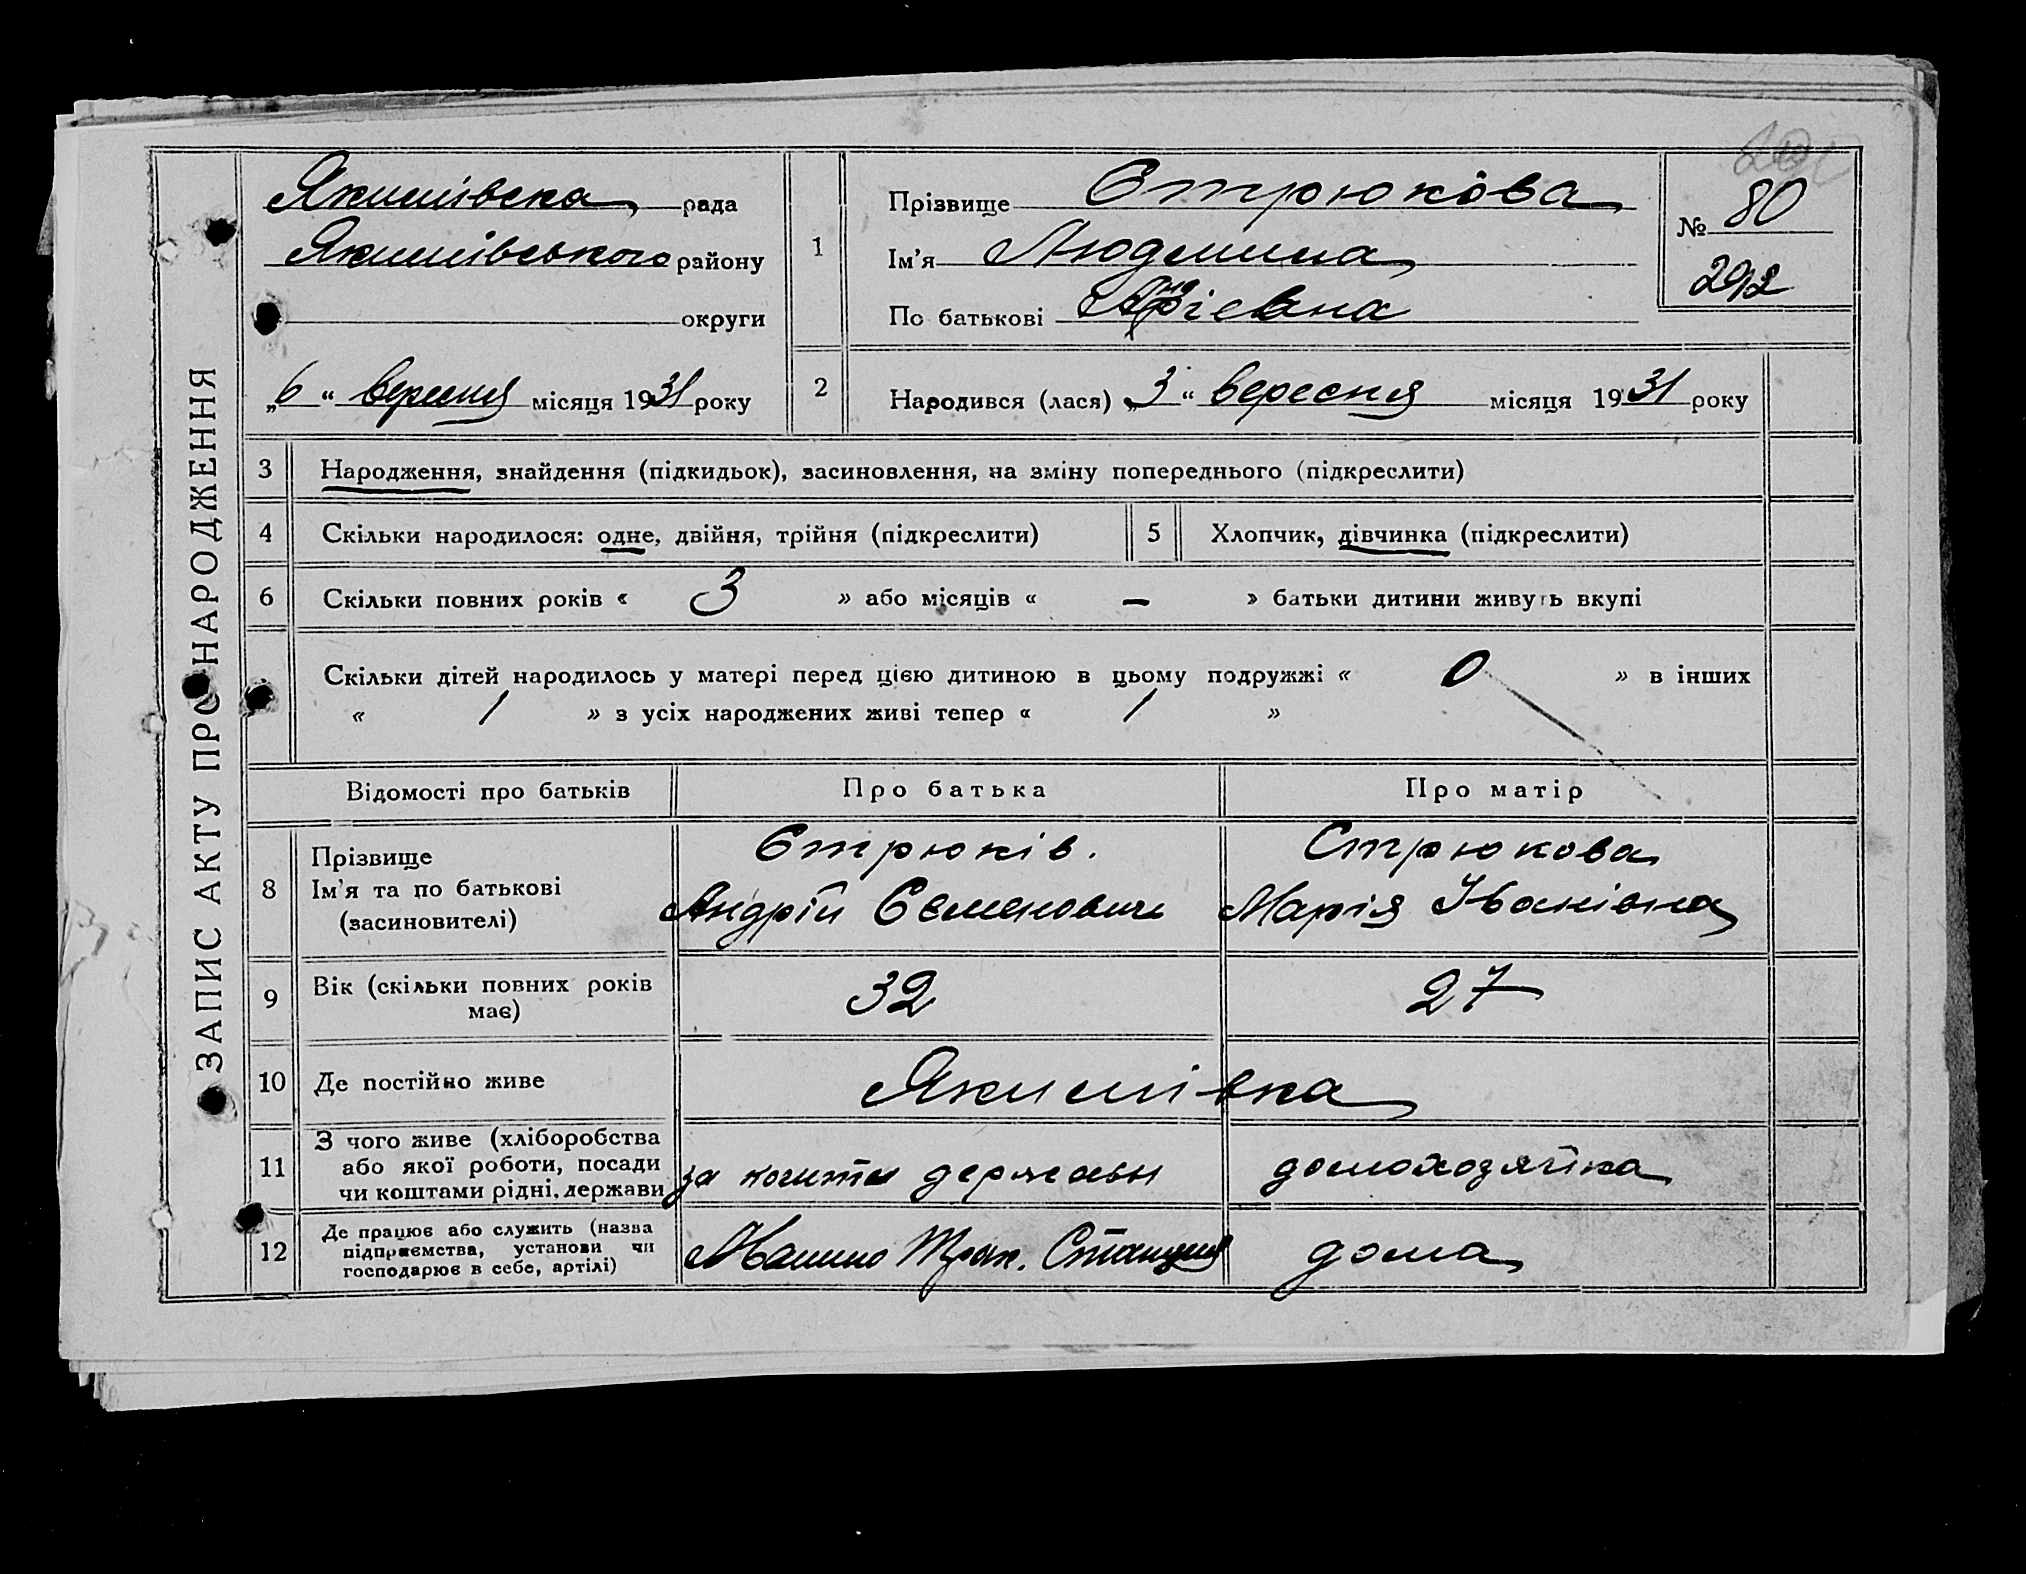 ЗАПИС АКТУ ПРО НАРОДЖЕННЯ
Якимівська рада
Якимівського району
округи
„6“ вересня місяця 1931 року
1
Прізвище Стрюкова
Ім'я Людмила
По батькові
№ 80
292
2
Народився (лася) „3“ вересня місяця 1931 року
3 Народження, знайдення (підкидьок), засиновлення, на зміну попереднього (підкреслити)
4 Скільки народилося: одне, двійня, трійня (підкреслити) 5 Хлопчик, дівчинка (підкреслити)
6 Скільки повних років « 3 » або місяців « – » батьки дитини живуть вкупі
Скільки дітей народилось у матері перед цією дитиною в цьому подружжі « 0 » в інших
« 1 » з усіх народжених живі тепер « 1 »
Відомості про батьків Про батька Про матір
8 Прізвище
Ім'я та по батькові
(засиновителі)
Стрюків.
Андрій Семенович
Стрюкова
Марія Іванівна
9 Вік (скільки повних років
має)
32 27
10 Де постійно живе Якимівка
11 З чого живе (хліборобства
або якої роботи, посади
чи коштами рідні, держави
за кошти держави домохозяйка
12 Де працює або служить (назва
підприємства, установи чи
господарює в себе, артілі)
Машино Трак. Станция дома